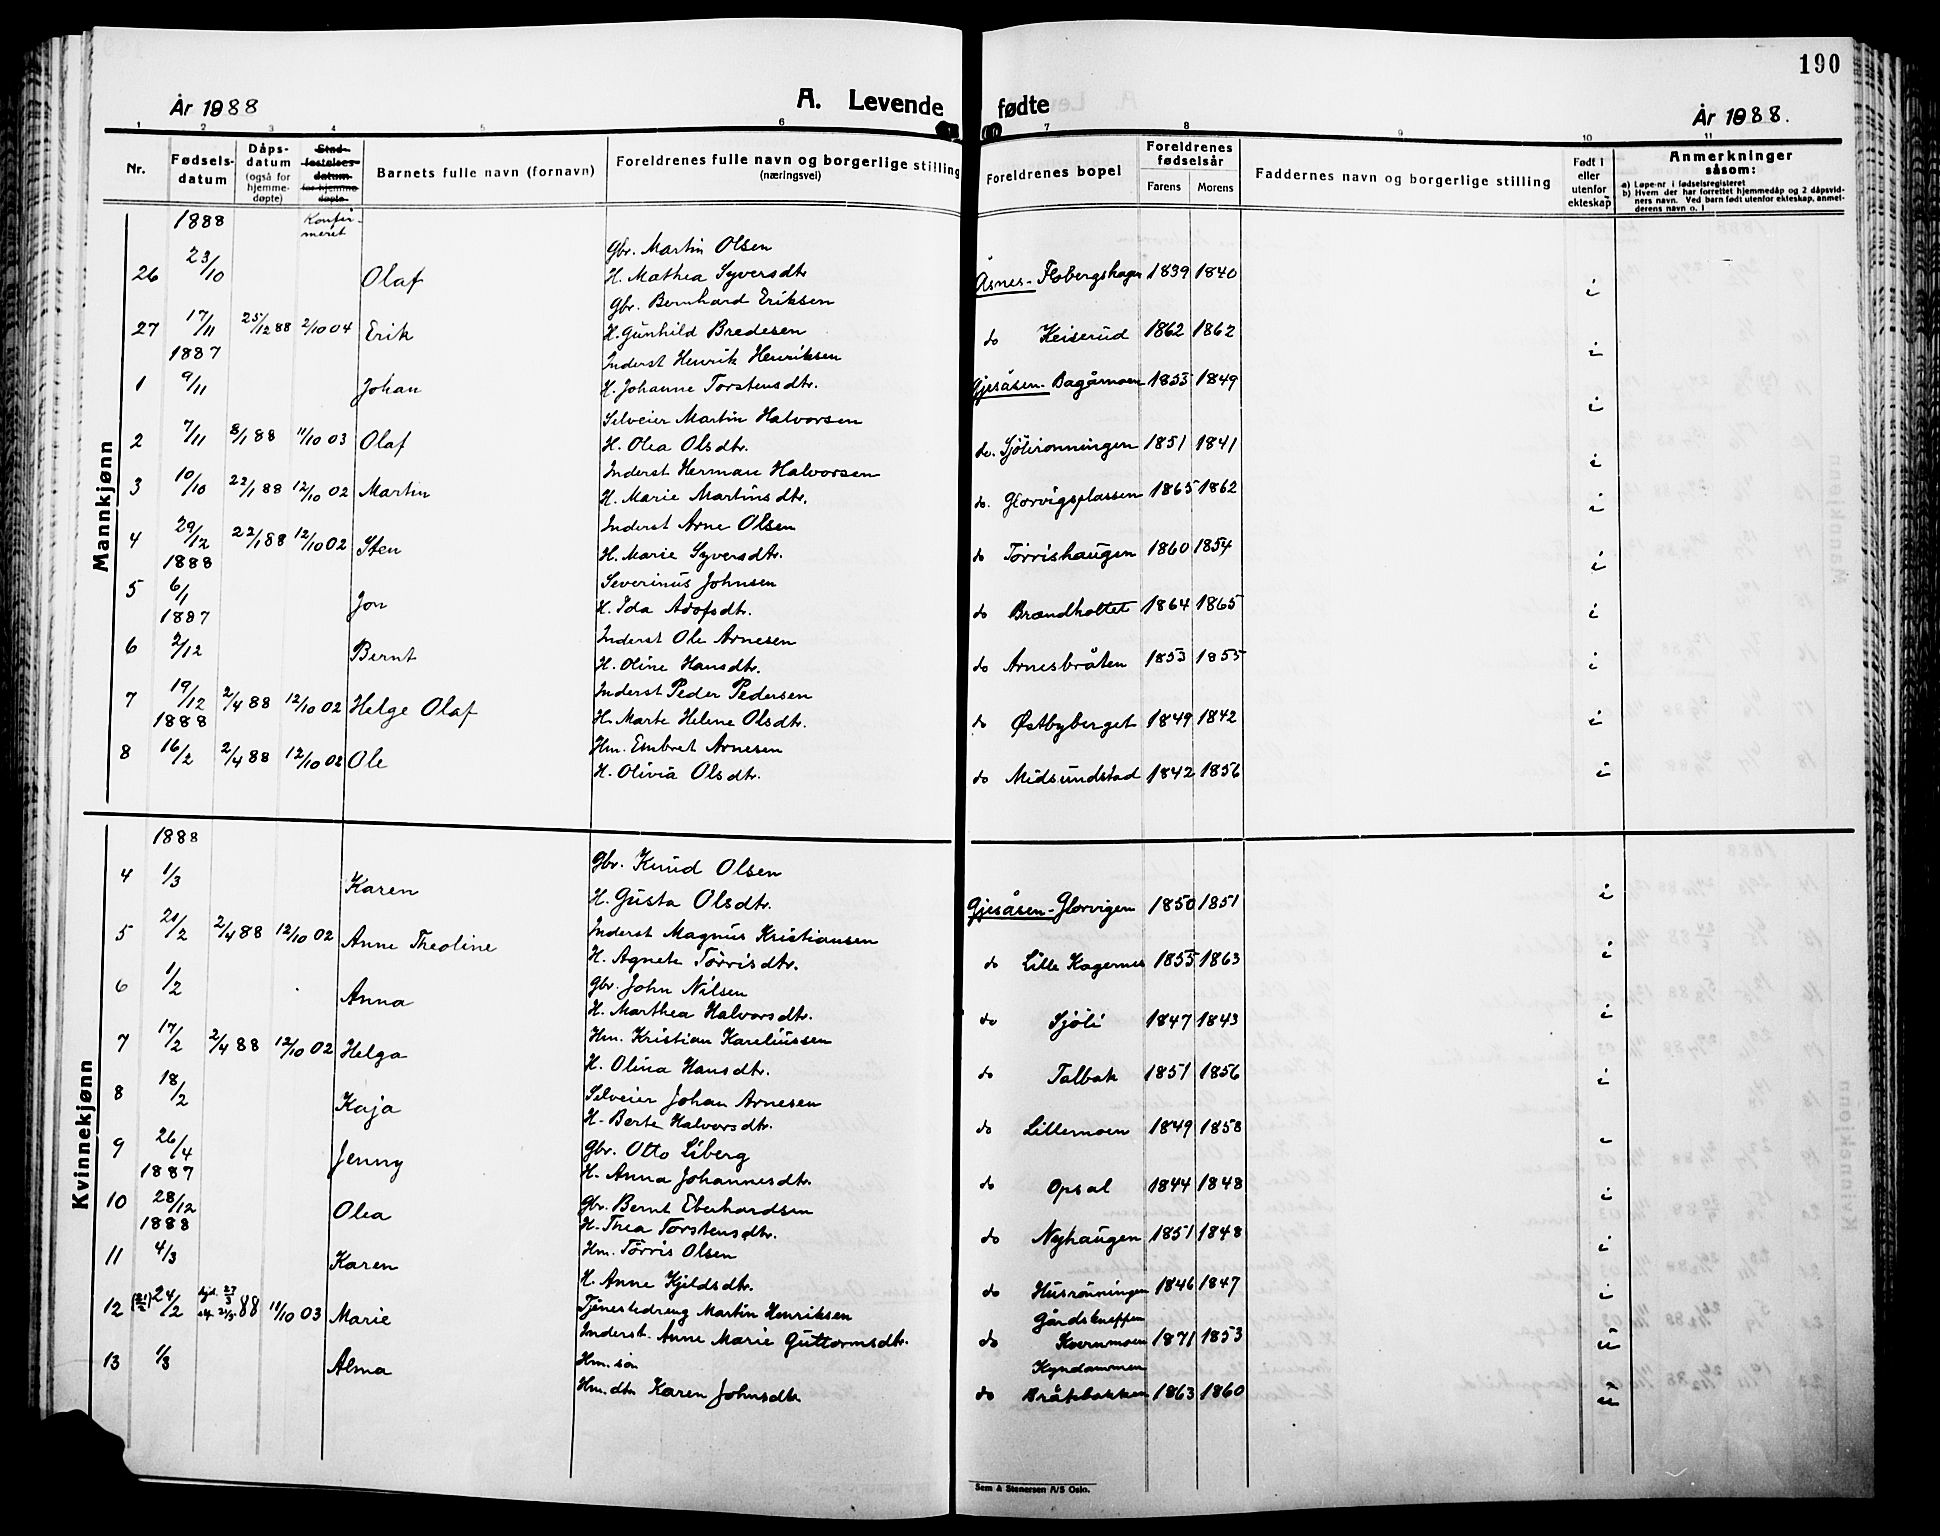 190
År 1888 A. Levende fødte År 1888.
1 2 3 4 5 6 7 8 9 10 11
Nr. Fødsels-datum Dåps-datum (også for hjemme-døpte) Stad-festelses-datum for hjemme-døpte Barnets fulle navn (fornavn) Foreldrenes fulle navn og borgerlige stilling (næringsvei) Foreldrenes bopel Foreldrenes fødselsår Farens Morens Faddernes navn og borgerlige stilling Født i eller utenfor ekteskap Anmerkninger såsom:
a) Løpe-nr i fødselsregisteret
b) Hvem der har forrettet hjemmedåp og 2 dåpsvid-
ners navn. Ved barn født utenfor ekteskap, anmel-
derens navn o. l
Mannkjønn
1888 Konfir-meret
Gbr. Martin Olsen
26 23/10 Olaf H. Mathea Syversdtr Åsnes- Flobergshagen 1839 1840 i
Gbr. Bernhard Eriksen
27 17/11 25/12 88 2/10 04 Erik H. Gunhild Bredesen do Keiserud 1862 1862 i
1887 Inderst Henrik Henriksen
1 9/11 Johan H. Johanne Torstensdtr. Gjesåsen- Bagårmoen 1855 1849 i
Selveier Martin Halvorsen
2 7/11 8/1 88 11/10 03 Olaf H. Olea Olsdtr. do. Sjølirønningen 1851 1841 i
Inderst Herman Halvorsen
3 10/10 22/1 88 12/10 02 Martin H. Marie Martinsdtr. do. Glorvigsplassen 1865 1862 i
Inderst Arne Olsen
4 29/12 22/1 88 12/10 02 Sten H. Marie Syversdtr. do Tørrishaugen 1860 1854 i
1888 Severinus Johnsen
5 6/1 Jon H. Ida Adofsdtr. do Brændholtet 1864 1865 i
1887 Inderst Ole Arnesen
6 2/12 Bernt H. Oline Hansdtr. do Arnesbråten 1853 1855 i
Inderst Peder Pedersen
7 19/12 2/4 88 12/10 02 Helge Olaf H. Marte Helene Olsdtr. do Østbyberget 1849 1842 i
1888 Hm. Embret Arnesen
8 16/2 2/4 88 12/10 02 Ole H. Olivia Olsdtr. do Midsundstad 1842 1856 i
Kvinnekjønn
1888
Gbr. Knud Olsen
4 1/3 Karen H. Gusta Olsdtr. Gjesåsen- Glorvigen 1850 1851 i
Inderst Magnus Kristiansen
5 20/2 2/4 88 12/10 02 Anne Theoline H. Agnete Tørrisdtr. do Lille Kagernes 1855 1863 i
Gbr. John Nilsen
6 1/2 Anna H. Marthea Halvorsdtr. do Sjøli 1847 1843 i
Hm. Kristian Kareliussen
7 17/2 2/4 88 12/10 02 Helga H. Olina Hansdtr. do Talbak 1851 1856 i
Selveier Johan Arnesen
8 18/2 Kaja H. Berte Halvorsdtr. do Lillemoen 1849 1858
Gbr. Otto Liberg
9 26/4 Jenny H. Anna Johannesdtr. do Opsal 1844 1848 i
1887 Gbr. Bernt Eberhardsen
10 28/12 Olea H. Thea Torstensdtr. do Nyhaugen 1851 1848 i
1888 Hm. Tørris Olsen
11 4/3 Karen H. Anne Kjeldsdtr. do Husrønningen 1846 1847 i
Tjenestedreng Martin Henriksen Gårdskneppen
12 24/2 88 11/10 03 Marie Inderst. Anne Marie Guttormsdtr. do Kvernmoen 1871 1853 u
Hm. søn Kyndammen
13 1/3 Alma Hm. dtr Karen Johnsdtr do Bråtebakken 1863 1860 u
Sem & Stenersen A/S Oslo.